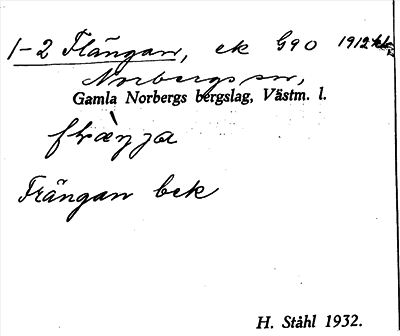 1-2 Flängan, ek G90 1912
Norbergs sn,
Gamla Norbergs bergslag, Västm. l.
Frängan bek
H. Ståhl 1932.